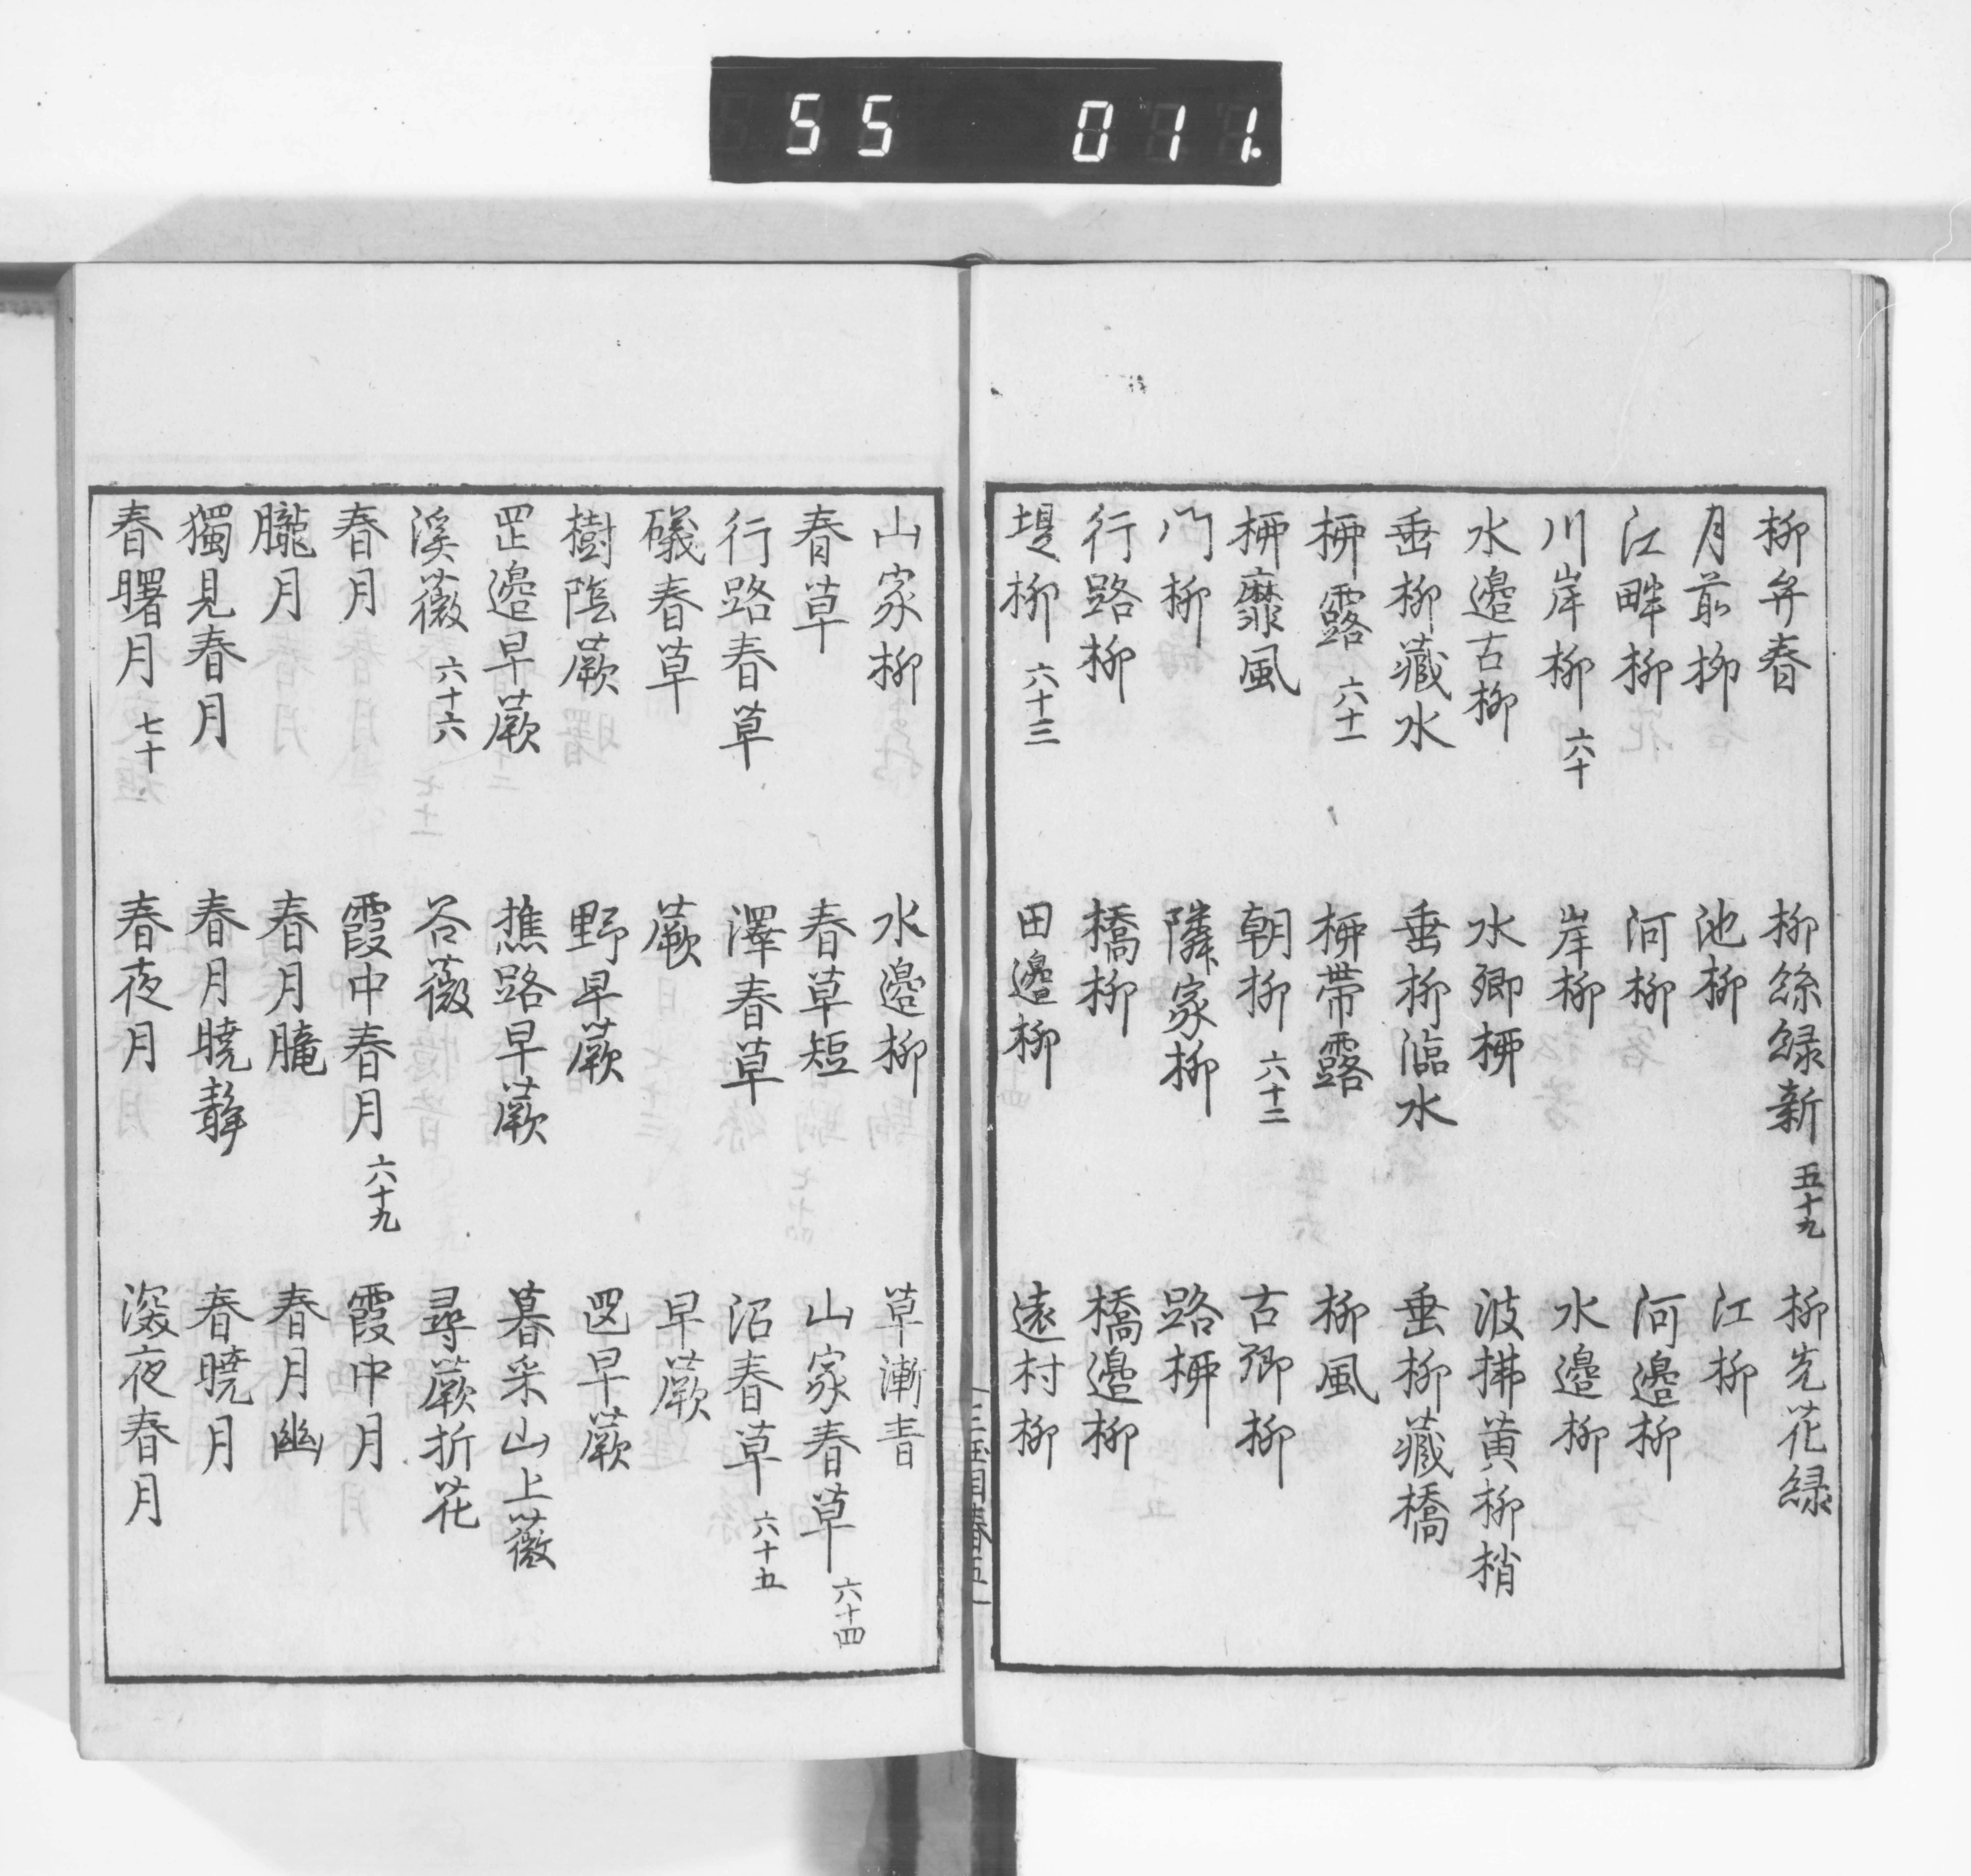 55 011.
柳弁春 柳絲緑新 五十九 柳先花緑
月前柳 池柳 江柳
江畔柳 河柳 河邊柳
川岸柳 六十 岸柳 水邊柳
水邊古柳 水郷柳 波拂黄柳梢
垂柳藏水 垂柳臨水 垂柳藏橋
柳露 六十一 柳帯露 柳風
柳靡風 朝柳 六十二 古郷柳
門柳 隣家柳 路柳
行路柳 橋柳 橋邊柳
堤柳 六十三 田邊柳 遠村柳
山家柳 水邊柳 草漸青
春草 春草短 山家春草 六十四
行路春草 澤春草 沼春草 六十五
礒春草 蕨 早蕨
樹陰蕨 野早蕨 罡早蕨
罡邊早蕨 樵路早蕨 暮采山上薇
溪薇 六十六 谷薇 尋蕨折花
春月 霞中春月 六十九 霞中月
朧月 春月朧 春月幽
獨見春月 春月暁静 春暁月
春曙月 七十 春夜月 深夜春月